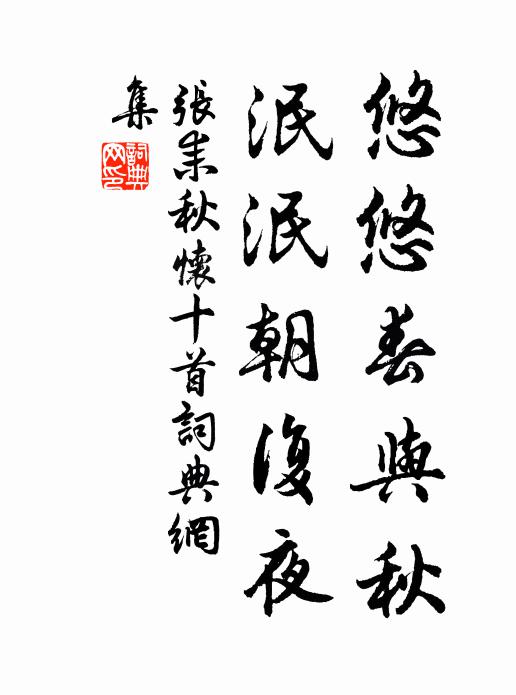 悠悠春與秋
泯泯朝復夜
張耒秋懷十首詞典網
集
詞典網印